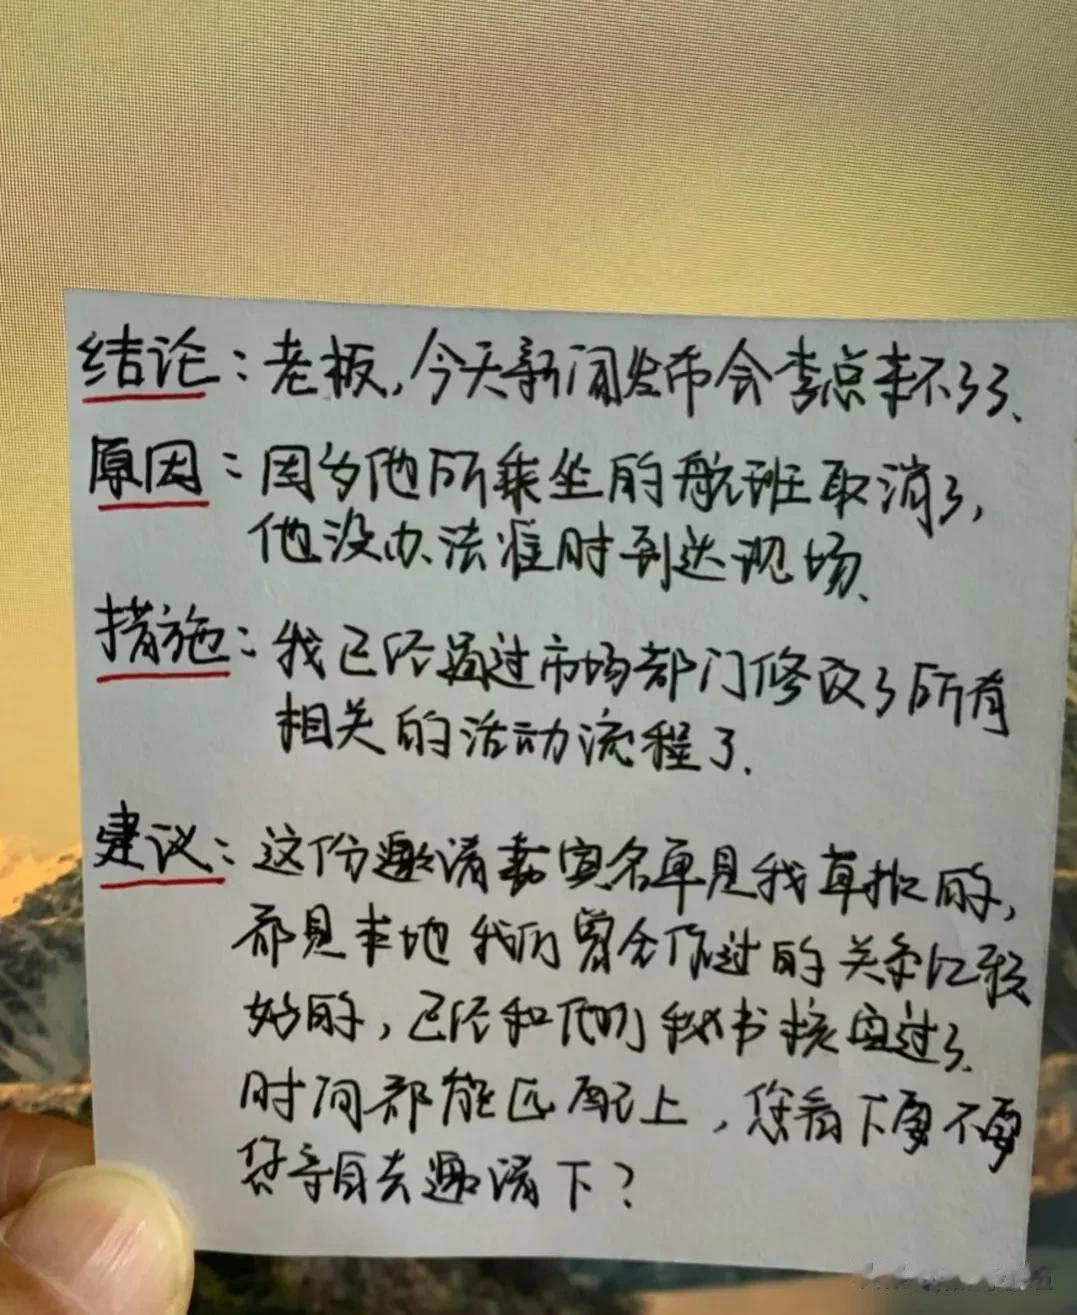 结论：老板，今天新闻发布会李总来不了了、
原因：因为他所乘坐的航班取消了，
他没办法准时到达现场、
措施：我已经通过市场部门修改了所有
相关的活动流程了.
建议：这份邀请嘉宾名单是我草拟的，
都是本地我们曾合作过的关系比较
好的，已经和他们秘书核实过了.
时间都能匹配上，您看下要不要
您亲自去邀请下？